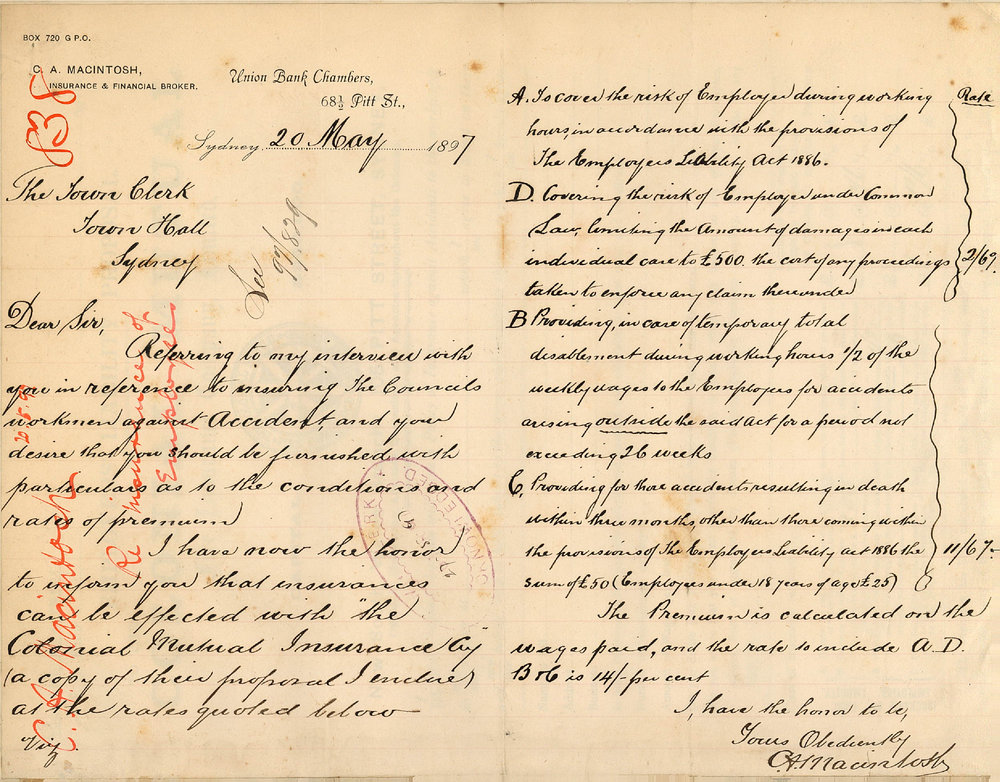 BOX 720 G P.O.
C. A. MACINTOSH,
INSURANCE & FINANCIAL BROKER.
Union Bank Chambers,
68½ Pitt St.,
Sydney 20 May 1897
The Town Clerk
Town Hall
Sydney
Dear Sir,
Referring to my interview with
you in reference to insuring The Councils
workmen against Accident, and your
desire that you should be furnished with
particulars as to the conditions and
rates of premium
I have now the honor
to inform you that insurances
can be effected with "the
Colonial Mutual Insurance Cy
(a copy of their proposal I enclose)
at the rates quoted below
Viz
838
See 97/829
C. A. Macintosh
Re Insurance of
Employees
A. To cover the risk of Employer during working
hours, in accordance with the provisions of
The Employers Liability Act 1886.
D. Covering the risk of Employer under Common
Law, limiting the Amount of damages in each
individual case to £500. the cost of any proceedings
taken to enforce any claim thereunder
B Providing, in case of temporary total
disablement during working hours 1/2 of the
weekly wages to the Employees for accidents
arising outside the said Act for a period not
exceeding 26 weeks
C, Providing for those accidents resulting in death
within three months, other than those coming within
the provisions of The Employers Liability Act 1886 the
sum of £50 (Employees under 18 years of age £25)
Rate
2/6
11/6
The Premium is calculated on the
wages paid, and the rate to include A. D.
B & C is 14/- per cent
I, have the honor to be,
Yours Obediently
C.A. Macintosh